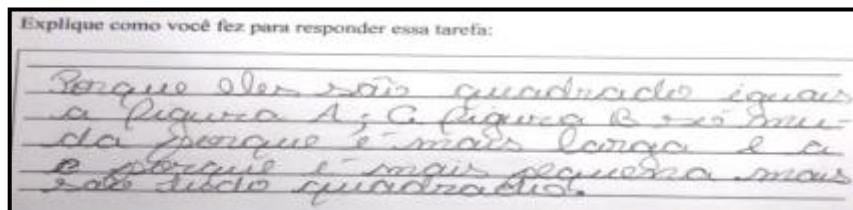 Explique como você fez para responder essa tarefa:
Porque eles são quadrado iguais
a figura A; C figura B só mu-
da porque é mais larga e a
e porque é mais pequena mais
são tudo quadrado.